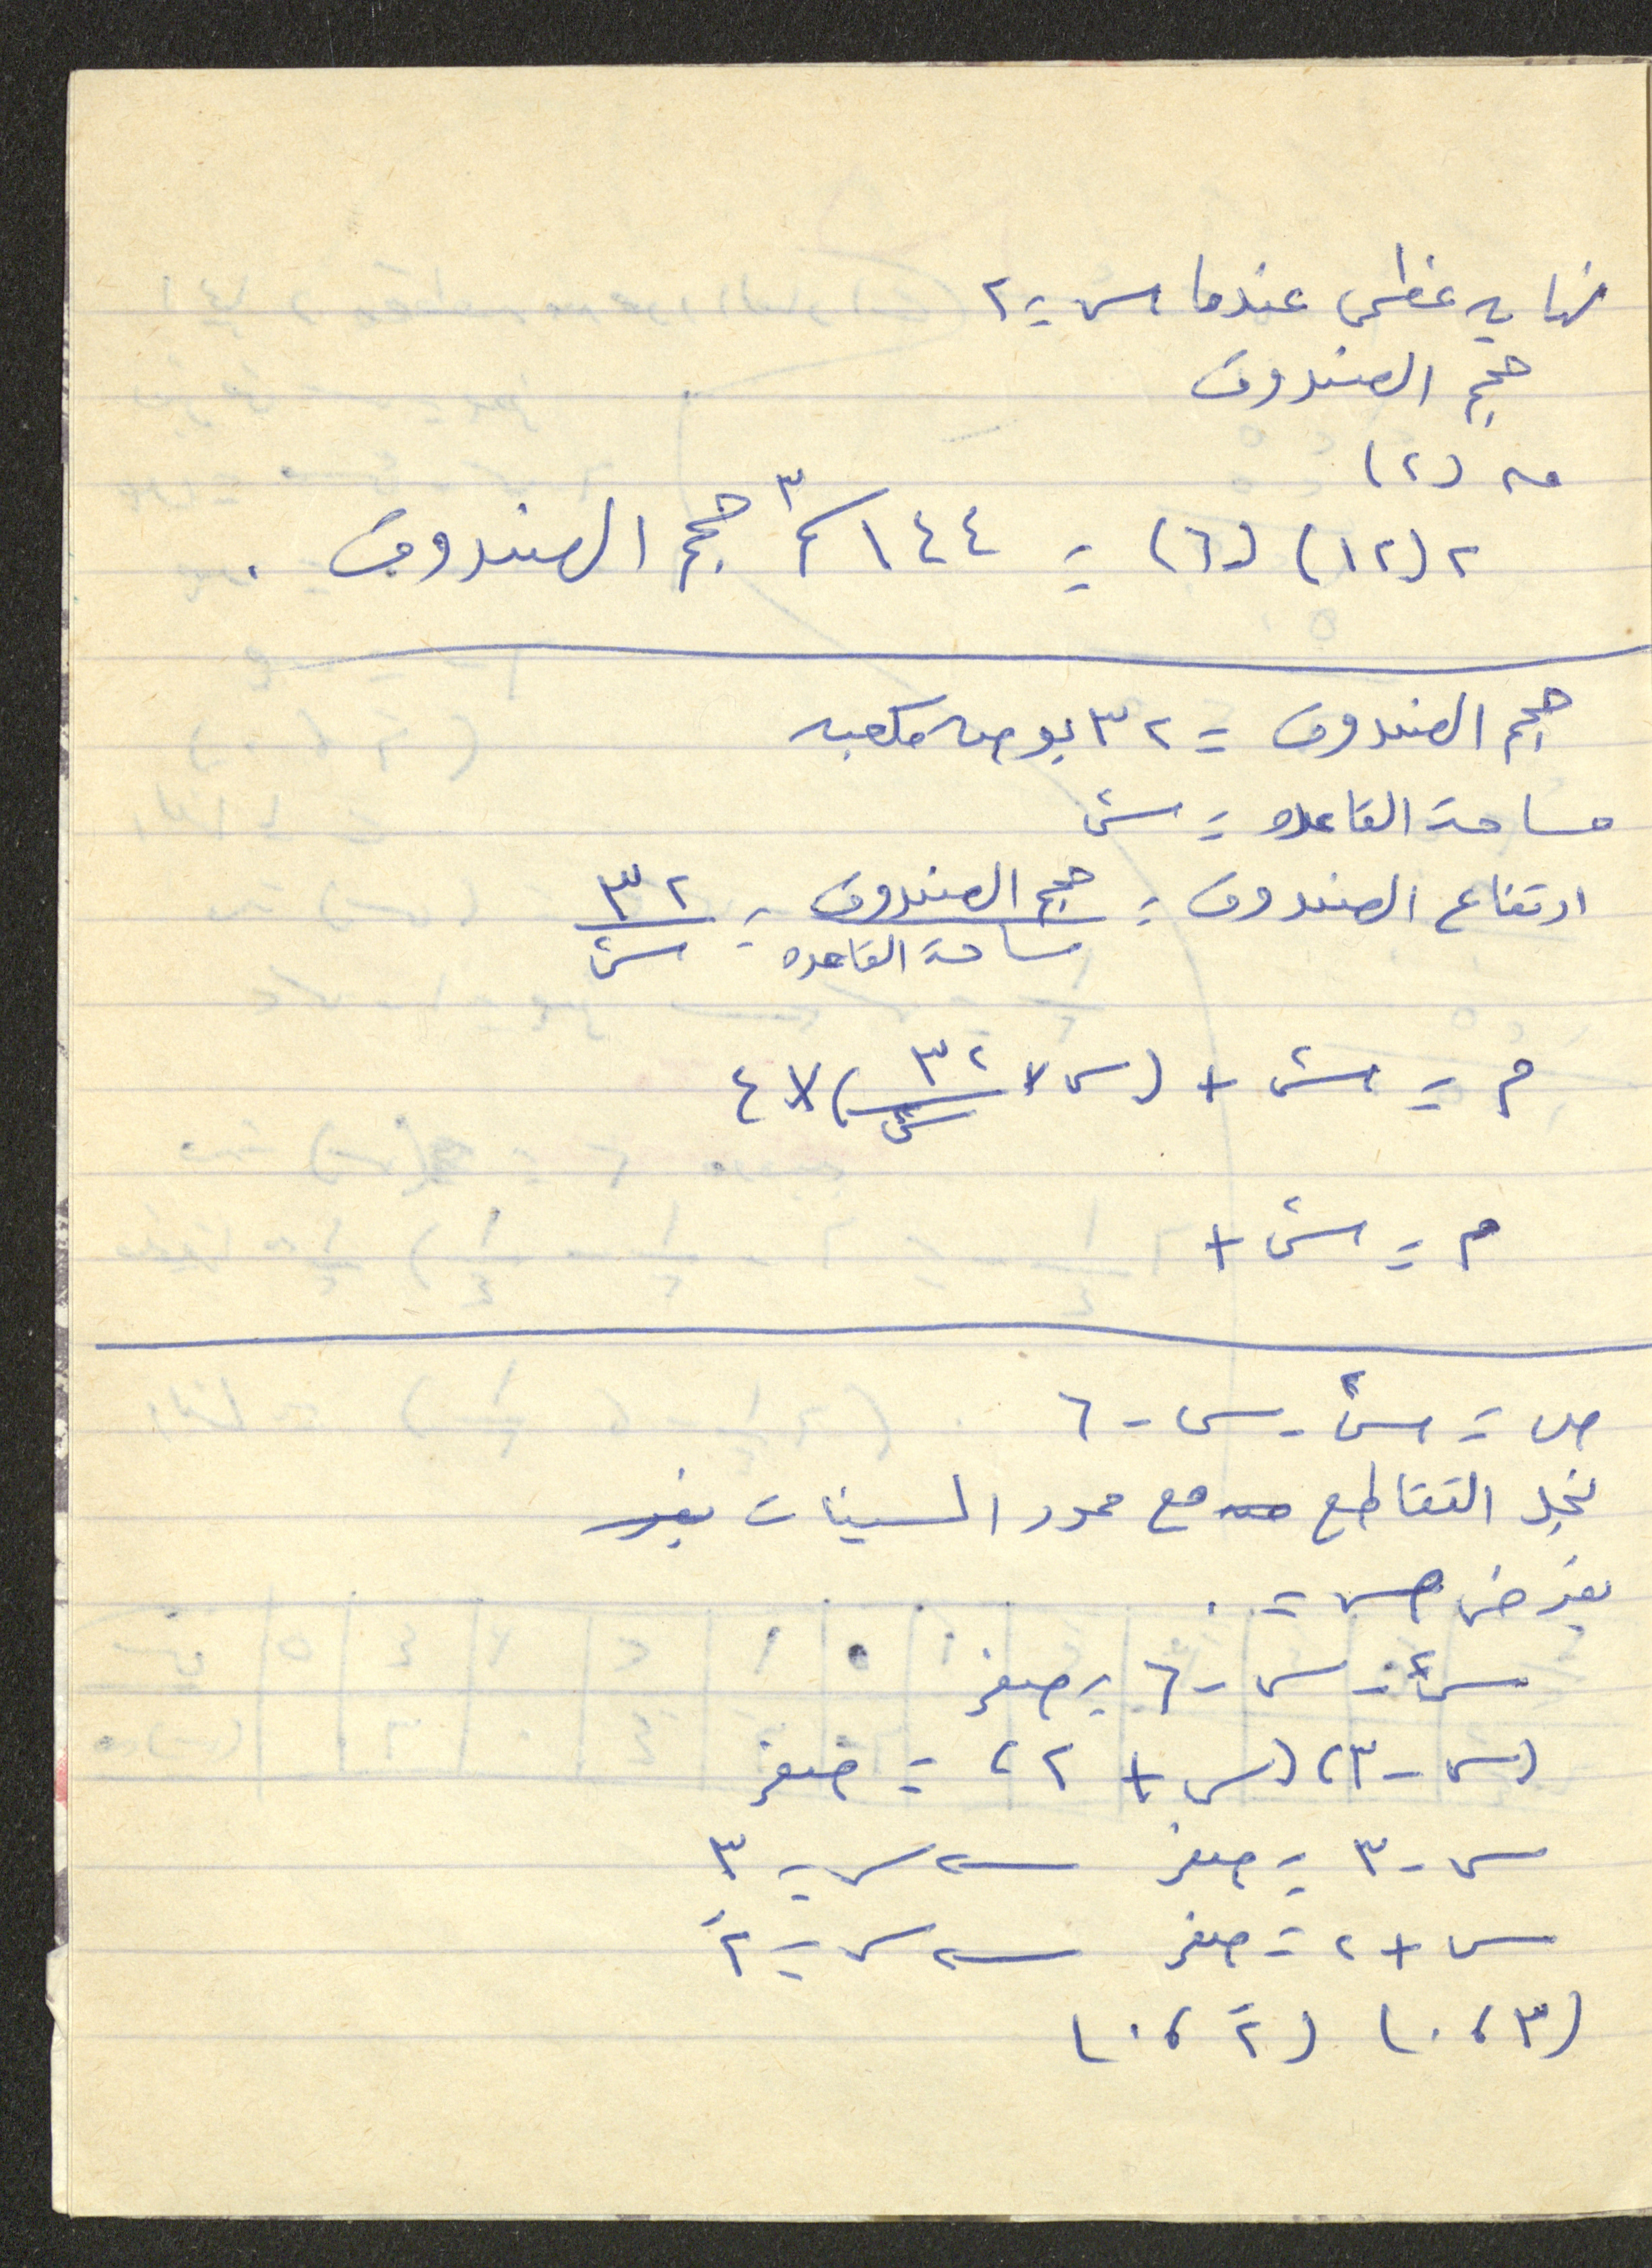 نهايه عظمى عندما س = ٢
حجم الصندوق
ق (٢)
٢ (١٢) (٦) = ١٤٤ سم٣ حجم الصندوق .
حجم الصندوق = ٣٢ بوصه مكعبه
مساحة القاعده = س٢
ارتفاع الصندوق = حجم الصندوق / مساحة القاعده = ٣٢ / س٢
م = س٢ + (س × ٣٢ / س٢) × ٤
م = س٢ +
ص = س٢ - س - ٦
نجد التقاطع مع محور السينات
بفرض ص = ٠
س٢ - س - ٦ = صفر
(س - ٣) (س + ٢) = صفر
س - ٣ = صفر ⇐ س = ٣
س + ٢ = صفر ⇐ س = -٢
(٣ ، ٠) (-٢ ، ٠)